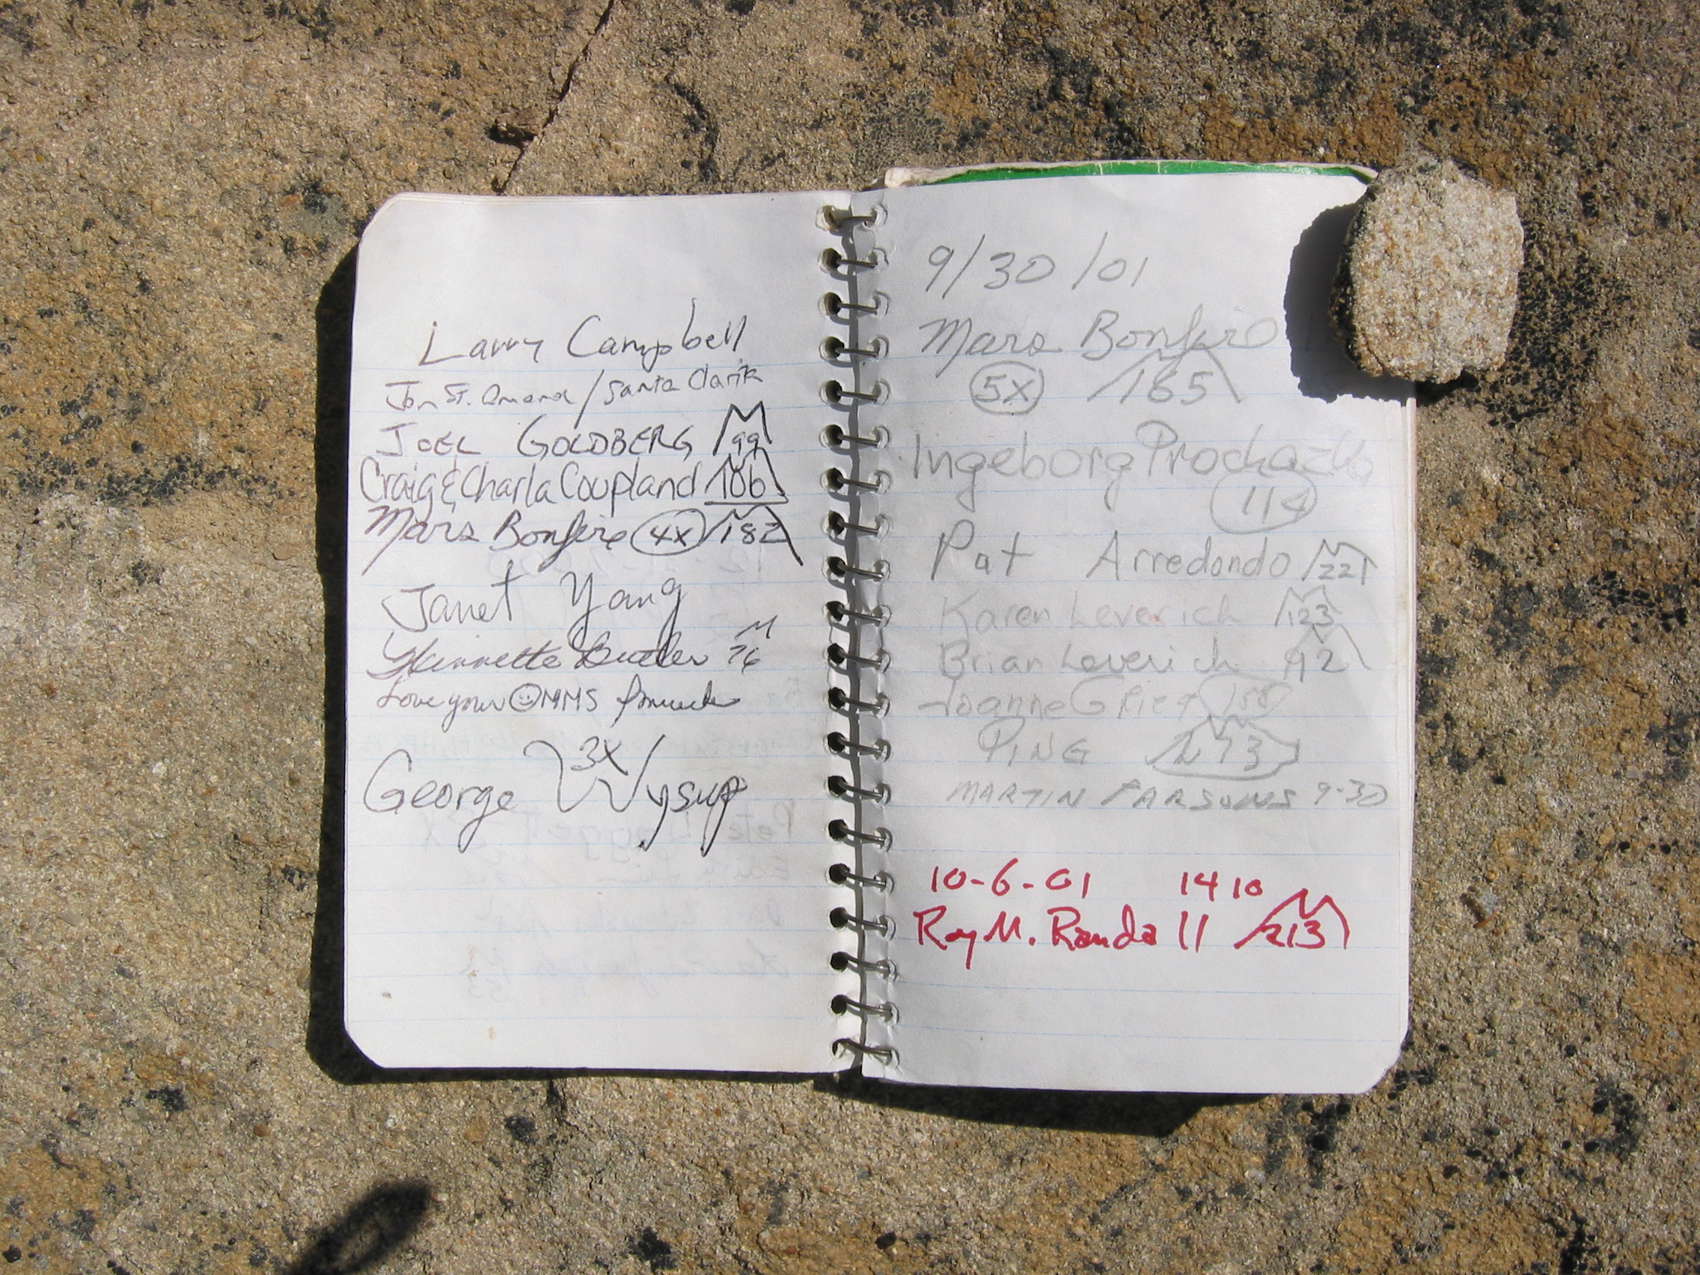 Larry Campbell
Jon St. Amand / Santa Clarita
JOEL GOLDBERG 99
Craig & Charla Coupland 106
Mars Bonfire 4x 182
Janet Yang
Butler 76
Love your MMS
3X
George Wysup
9/30/01
Mars Bonfire
5x 165
Ingeborg Prochazka
114
Pat Arredondo 221
Karen Leverich 123
Brian Leverich 92
Joanne Griego 158
PING 273
MARTIN PARSONS 9-30
10-6-01 1410
Roy M. Randall 213